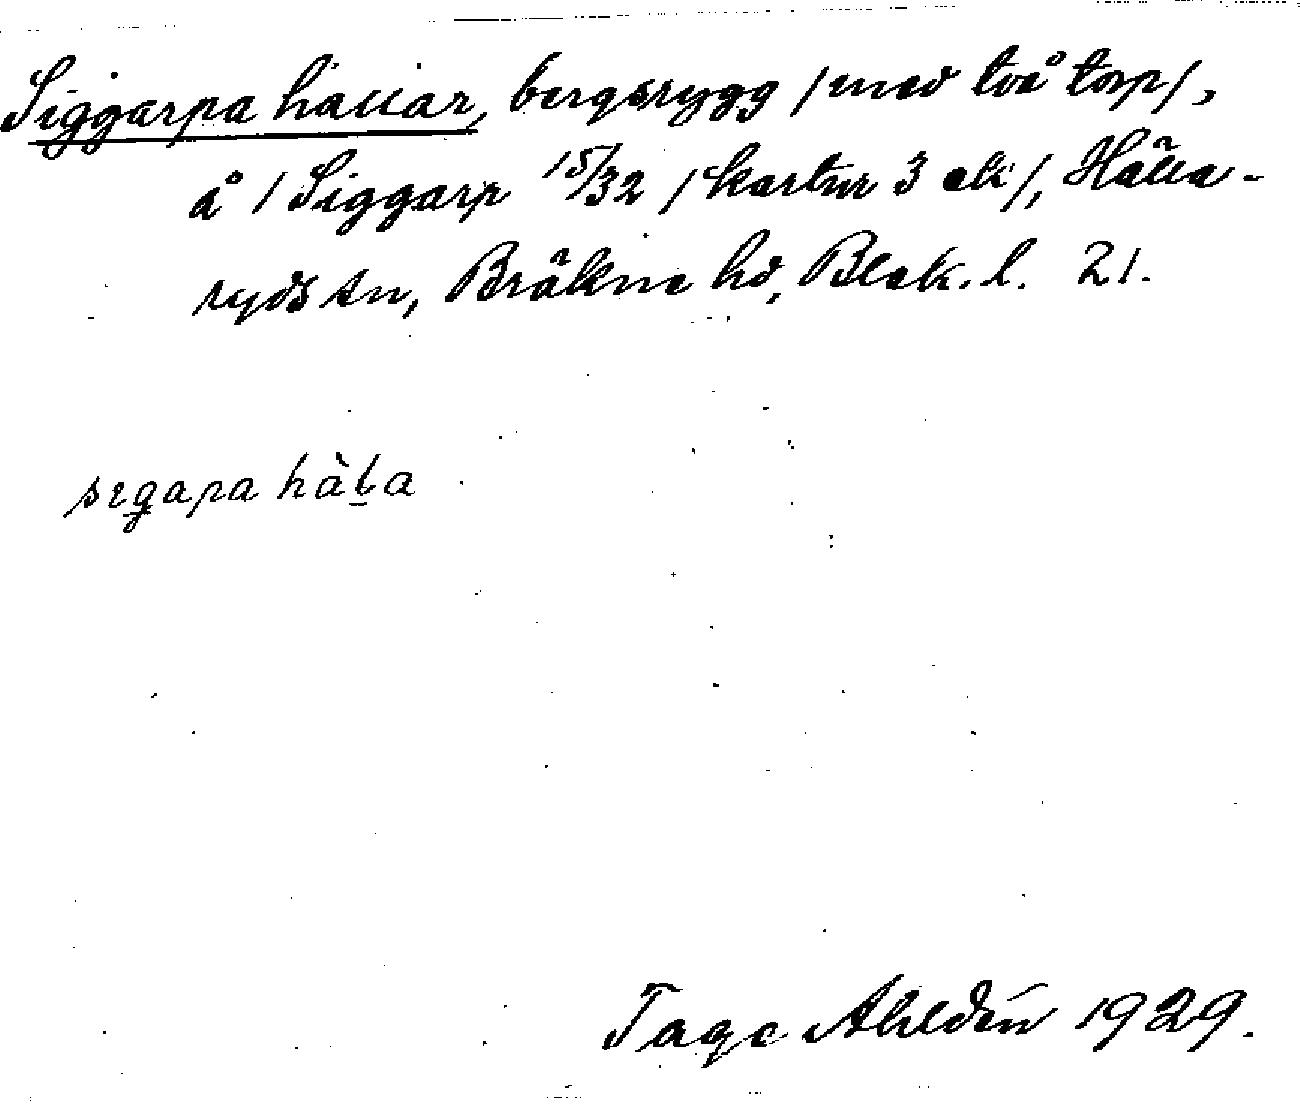 Siggarpa hallar, bergsrygg /med två torp/,
å / Siggarp 15/32 /kartnr 3 ek/, Hälla-
ryds sn, Bräkne hd, Blek. l. 21.
sɪgapa hàla
Tage Ahldén 1929.